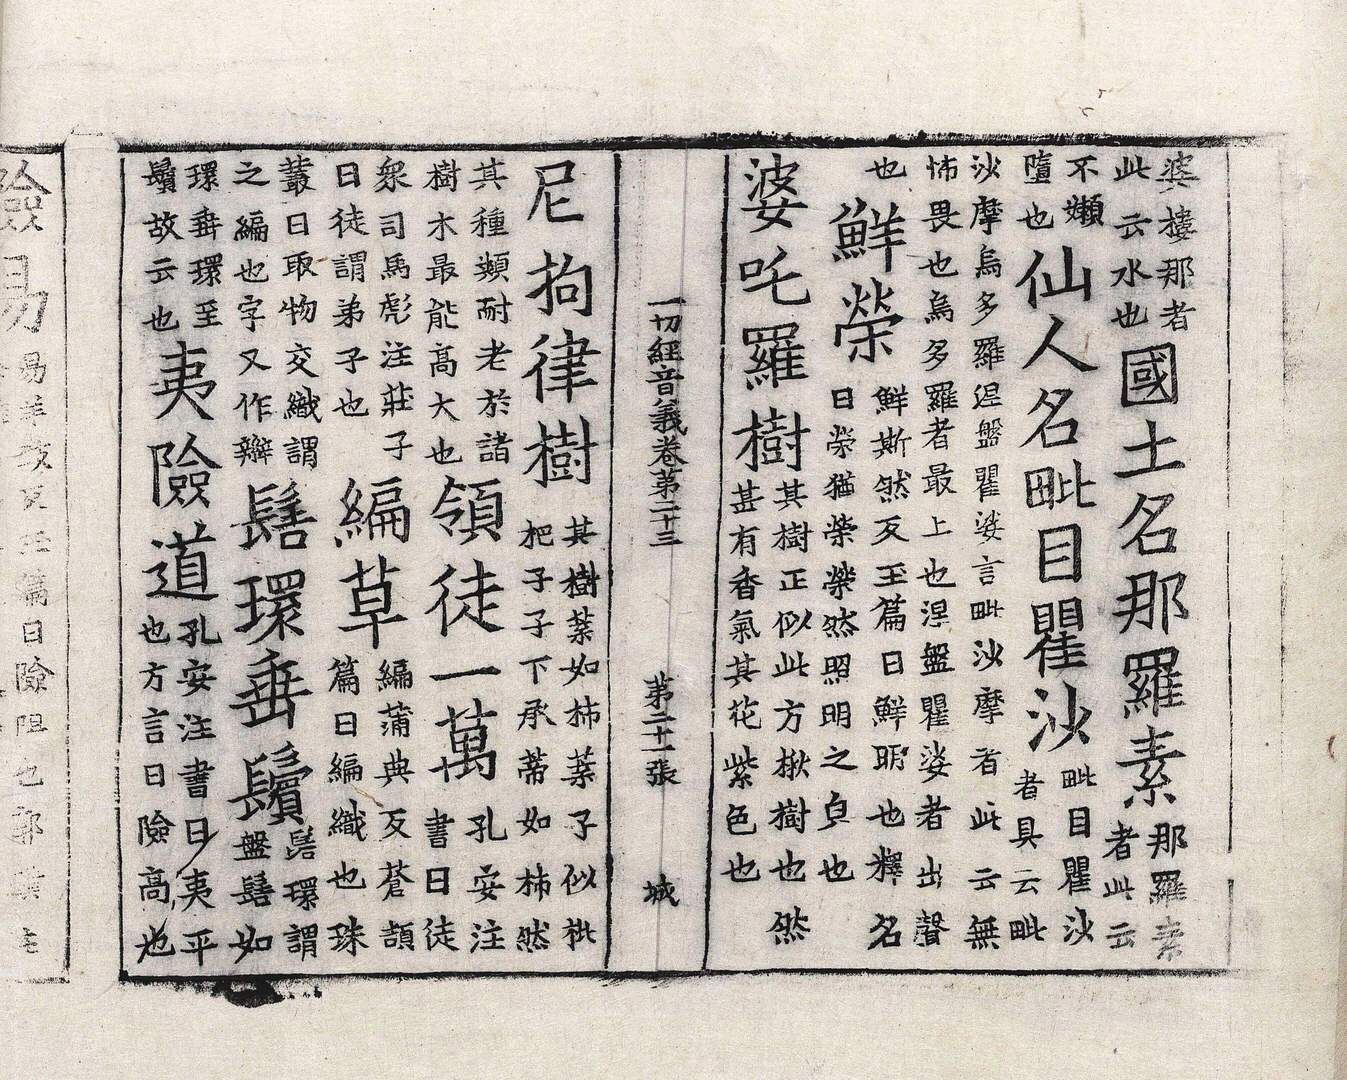 婆樓那者
此云水也國土名那羅素那羅素
者此云
不嬾
墮也仙人名毗目瞿沙毗目瞿沙
者具云毗
沙摩烏多羅涅盤瞿婆言毗沙摩者此云無
怖畏也烏多羅者最上也涅盤瞿婆者出聲
也鮮榮鮮斯然反玉篇曰鮮明也釋名
曰榮猶榮榮然照明之皃也
婆吒羅樹其樹正似此方楸樹也然
甚有香氣其花紫色也
一切經音義卷第二十三 第二十一張 城
尼拘律樹其樹葉如柿葉子似枇
杷子子下承蒂如柿然
其種類耐老於諸
樹木最能高大也領徒一萬孔安注
書曰徒
衆司馬彪注莊子
曰徒謂弟子也編草編蒲典反蒼頡
篇曰編織也珠
叢曰取物交織謂
之編也字又作辮髻環垂鬟髻環謂
盤髻如
環垂環至
鬟故云也夷險道孔安注書曰夷平
也方言曰險高也
險易